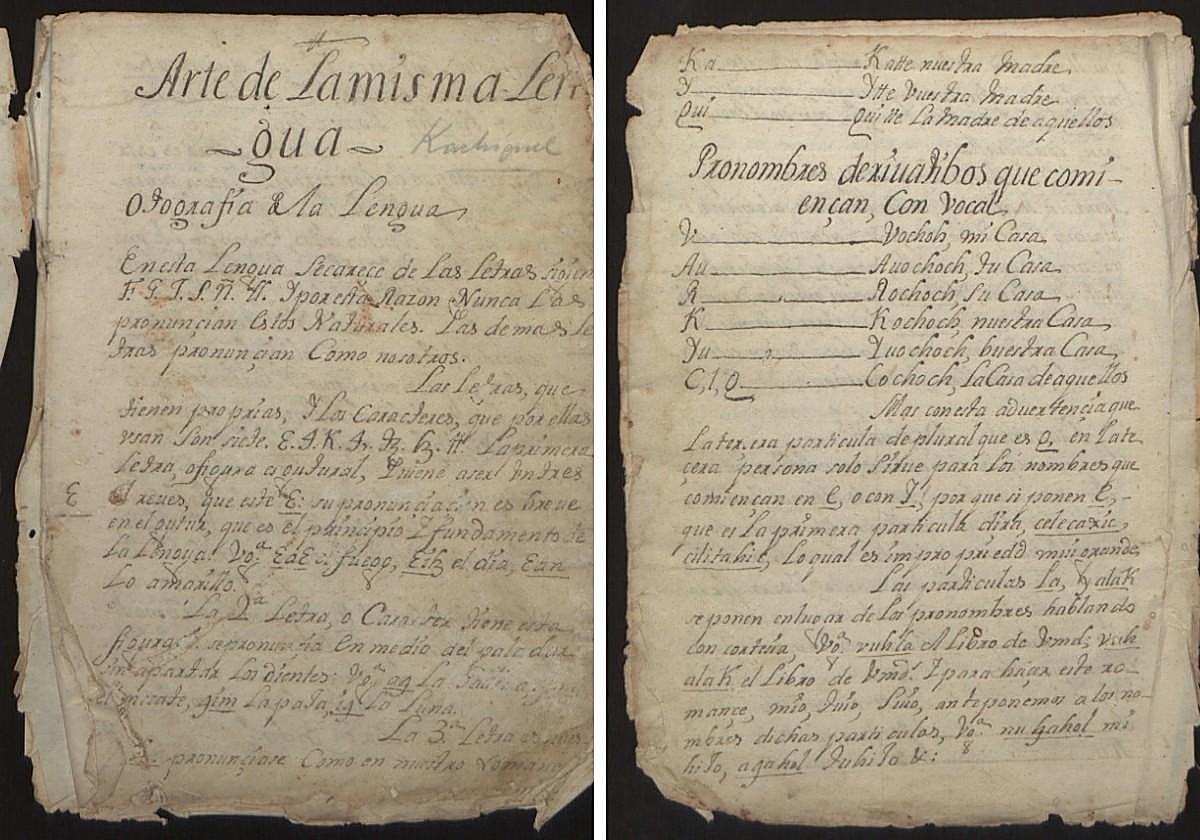 Arte de La misma Len
gua
Kachiquel
Otografia de la Lengua
En esta Lengua Se carece de las Letras siguien
F. G. J. S. Ñ. ll. Y por esta Razon Nunca Las
pronuncian estos Naturales. Las demas le
tras pronunçian Como nosotros.
Las Letras, que
tienen proprias, Y los Caracteres, que por ellas
usan Son siete. La primera
Letra, o figura es gutural, Y viene a ser un tres
Ɛ
al reves, que este Ɛ: su pronunciacion es breve
en el gutur, que es el principio Y fundamento de
La Lengua. Vg.ª ƐaƐ el fuego, el dia, Ɛan
Lo amarillo.
La 2ª Letra, o Caracter tiene esta
figura se pronunçia En medio del paladar
sin apartar los dientes: Vg.ª
La pata, La Luna.
La 3.ª Letra es
pronunçiase Como en nuestro Romanç
Ka Katte nuestra Madre
Y Ytte vuestra Madre
Qui Quitte La Madre de aquellos
Pronombres derivatibos que comi-
ençan, Con Vocal
V Vochoh, mi Casa
Au Avochoch, tu Casa
R Rochoch, Su Casa
K Kochoch, nuestra Casa
Yu Yvochoch, buestra Casa
C, l, Q Cochoch, La Casa de aquellos
Mas con esta advertençia que
La terçera particula de plural que es Q, en La te
çera persona solo Sirve para los nombres que
comiençan en E, o con I, por que si ponen C, -
que es La primera particula dira, celecaxic,
cilitahic, Lo qual es impropriedad mui grande,
Las particulas La, Y alak
se ponen en lugar de los pronombres hablando
con cortesia, Vg.ª vuhla el Libro de Vmd; vuh
alak el Libro de Vmds. Y para haçer este ro-
mance, mio, tuio, Suio, anteponemos a los no-
mbres dichas particulas, Vg.ª mi
hito, tu hito &:
8